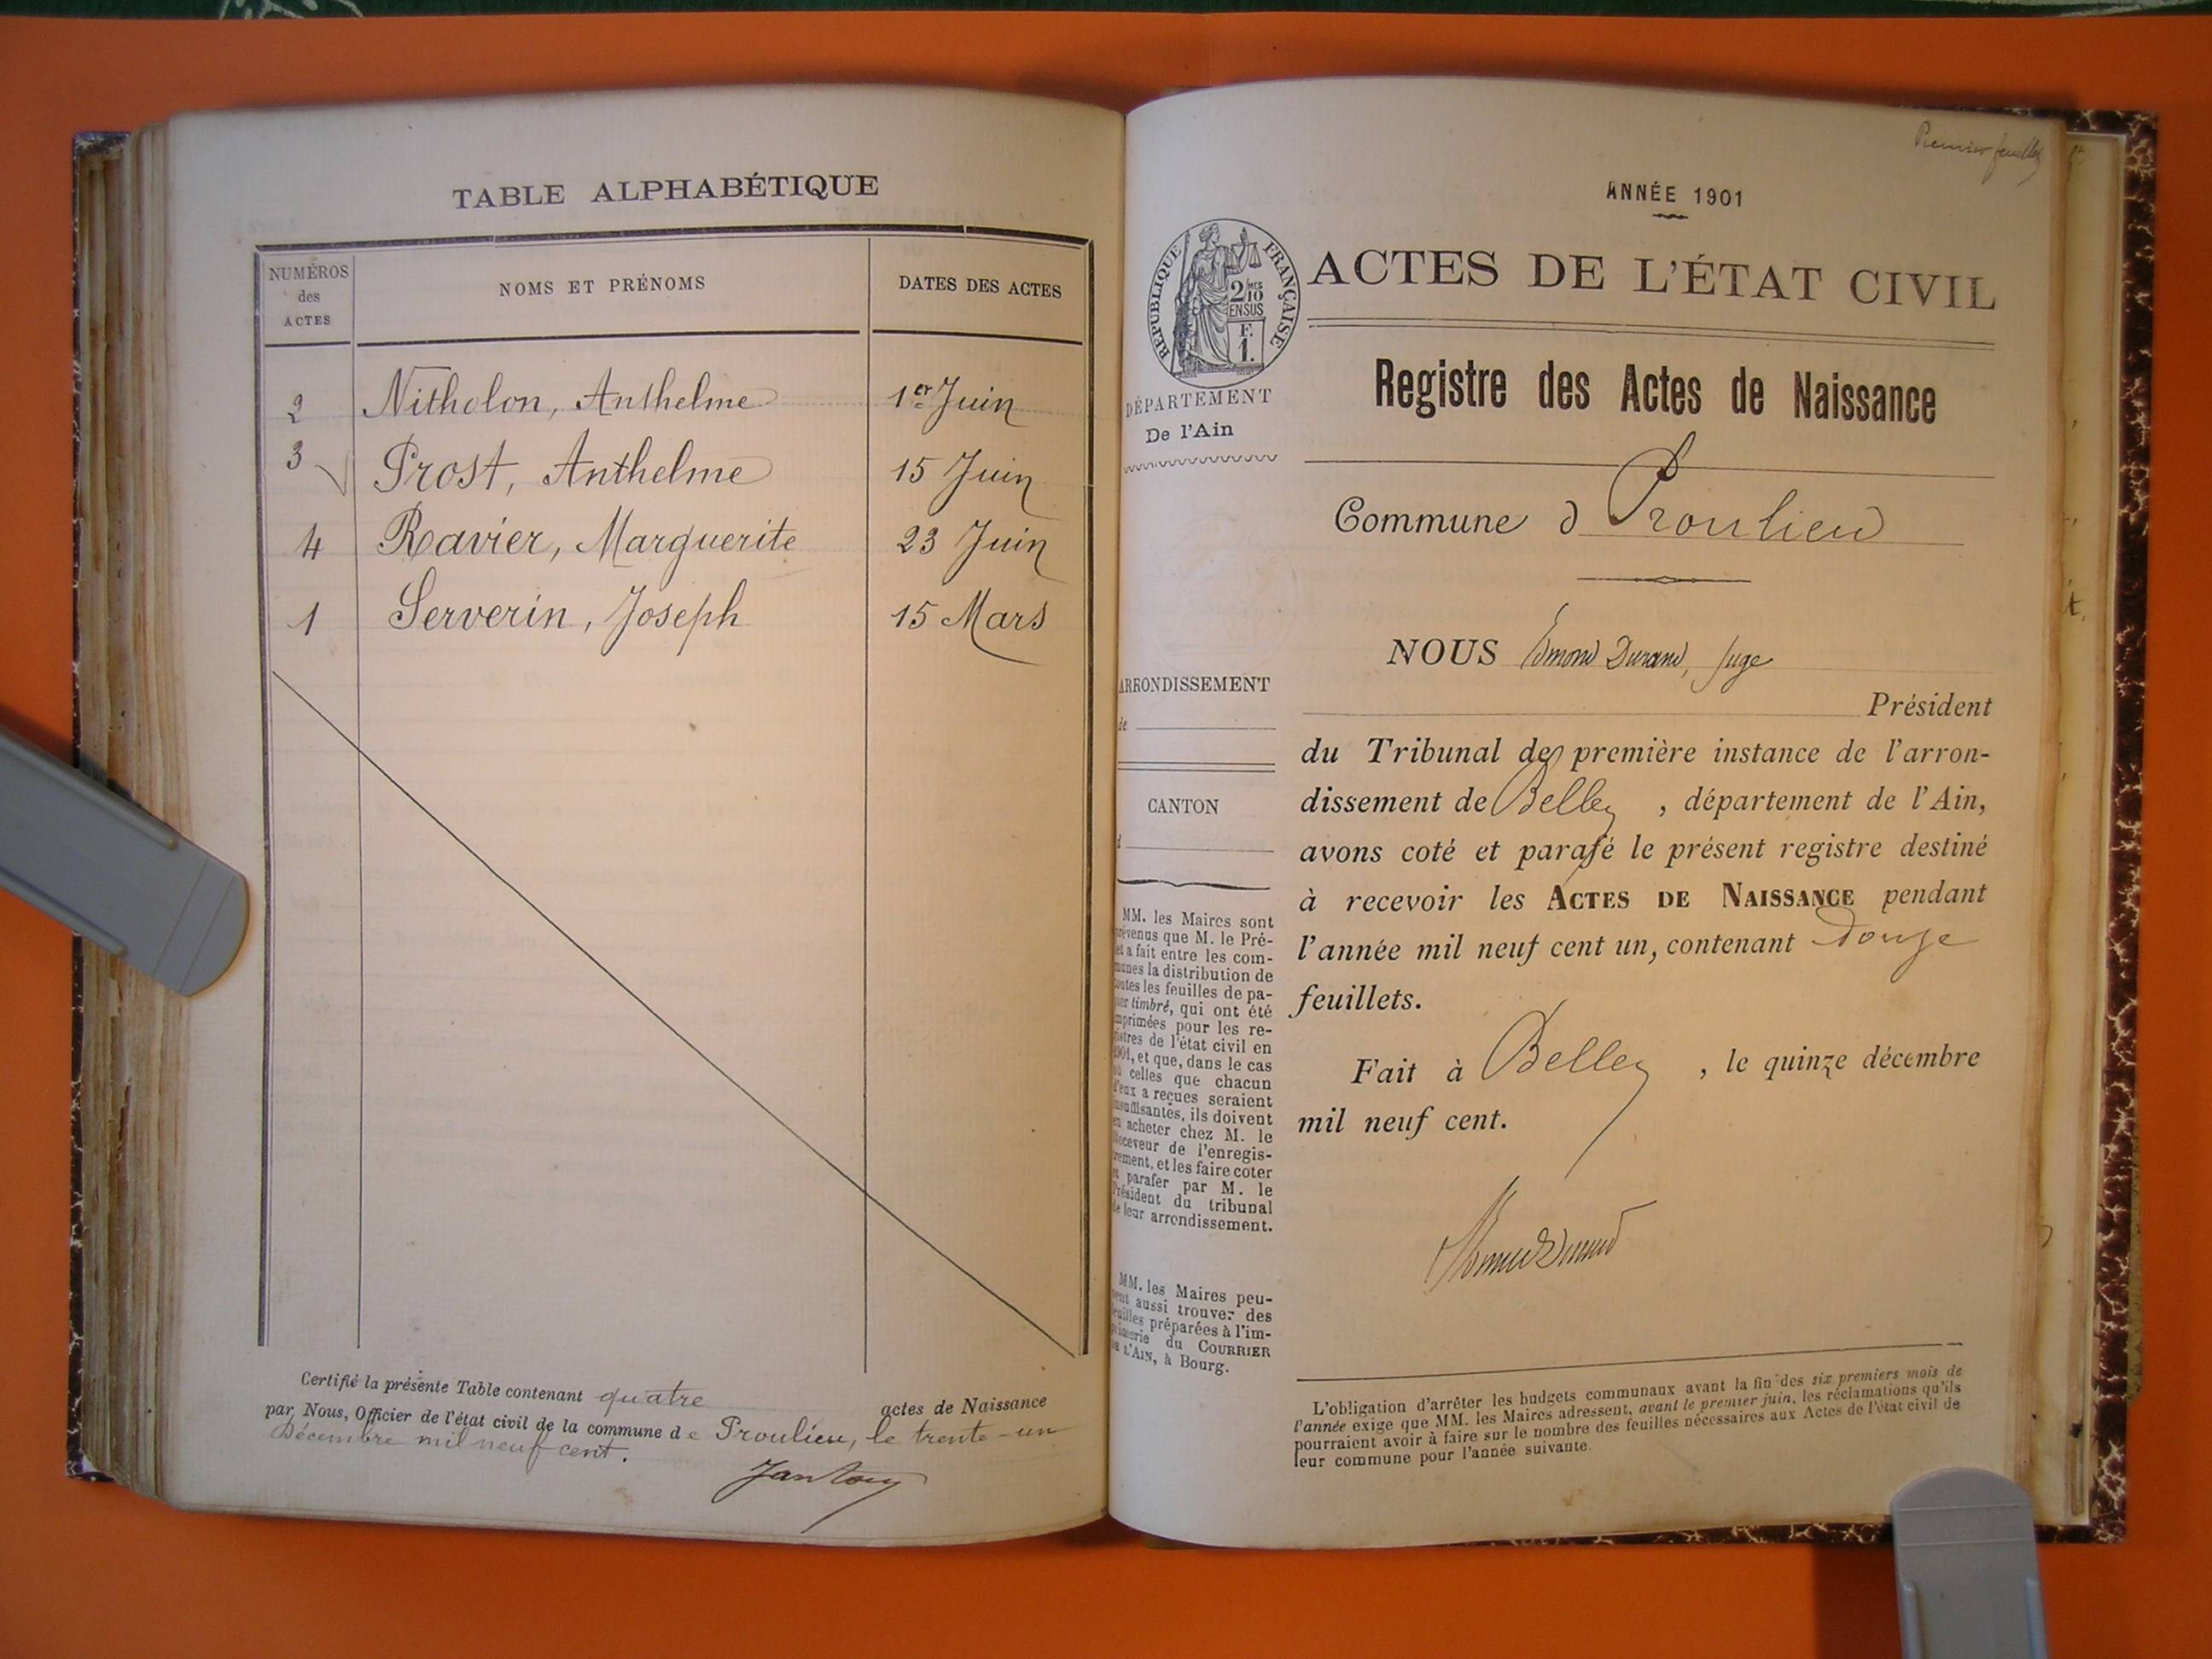 TABLE ALPHABÉTIQUE
NUMÉROS
des
ACTES
NOMS ET PRÉNOMS
DATES DES ACTES
2 Nitholon, Anthelme 1er Juin
3 Prost, Anthelme 15 Juin
4 Ravier, Marguerite 23 Juin
1 Serverin, Joseph 15 Mars
Certifié la présente Table contenant quatre actes de Naissance
par Nous, Officier de l'état civil de la commune de Proulieu, le trente-un
Décembre mil neuf cent.
Premier feuillet
ANNÉE 1901
RÉPUBLIQUE FRANÇAISE
2/10
EN SUS
F.
1.
ACTES DE L'ÉTAT CIVIL
DÉPARTEMENT
De l'Ain
Registre des Actes de Naissance
Commune d Proulieu
NOUS Edmond Durand, Juge
Président
du Tribunal de première instance de l'arron-
dissement de Belley, département de l'Ain,
avons coté et parafé le présent registre destiné
à recevoir les ACTES DE NAISSANCE pendant
l'année mil neuf cent un, contenant douze
feuillets.
Fait à Belley, le quinze décembre
mil neuf cent.
ARRONDISSEMENT
de
CANTON
d
MM. les Maires sont
prévenus que M. le Pré-
fet a fait entre les com-
munes la distribution de
toutes les feuilles de pa-
pier timbré, qui ont été
imprimées pour les re-
gistres de l'état civil en
1901, et que, dans le cas
où celles que chacun
d'eux a reçues seraient
insuffisantes, ils doivent
en acheter chez M. le
Receveur de l'enregis-
trement, et les faire coter
et parafer par M. le
Président du tribunal
de leur arrondissement.
MM. les Maires peu-
vent aussi trouver des
feuilles préparées à l'im-
primerie du COURRIER
DE L'AIN, à Bourg.
L'obligation d'arrêter les budgets communaux avant la fin des six premiers mois de
l'année exige que MM. les Maires adressent, avant le premier juin, les réclamations qu'ils
pourraient avoir à faire sur le nombre des feuilles nécessaires aux Actes de l'état civil de
leur commune pour l'année suivante.